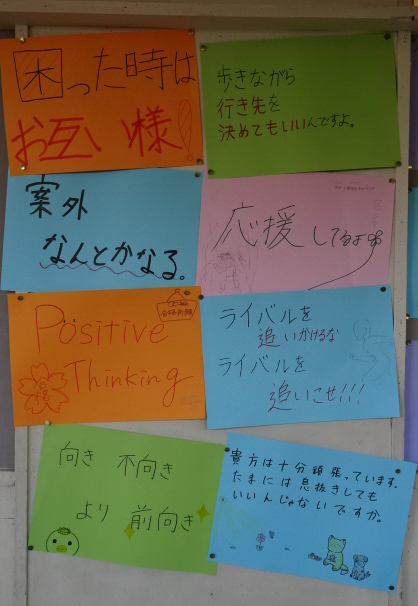 困った時は
お互い様!
歩きながら
行き先を
決めてもいいんですよ。
案外
なんとかなる。
応援してるよ
Positive
Thinking
合格
ライバルを
追いかけるな
ライバルを
追いこせ!!!
向き 不向き
より 前向き
貴方は十分頑張っています。
たまには息抜きしても
いいんじゃないですか。